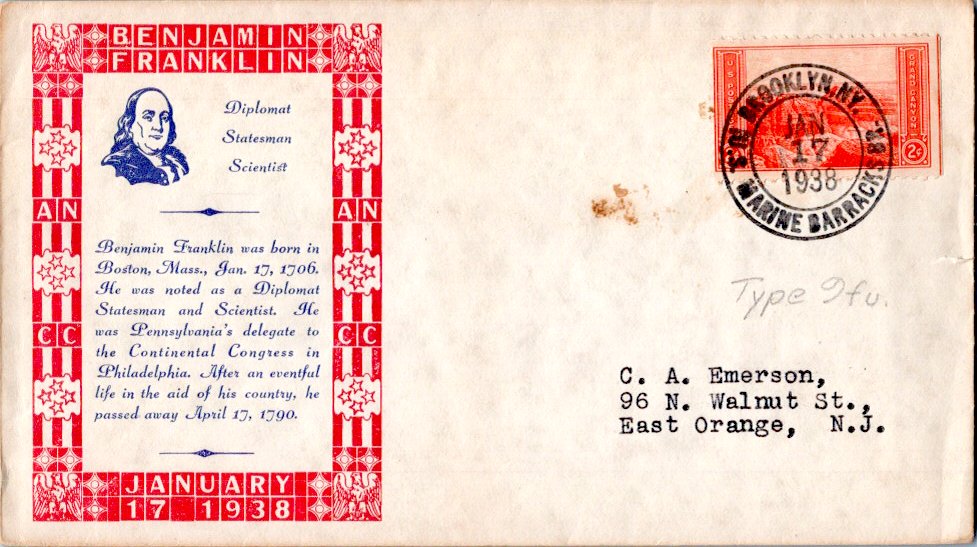 BENJAMIN
FRANKLIN
Diplomat
Statesman
Scientist
AN AN
Benjamin Franklin was born in
Boston, Mass., Jan. 17, 1706.
He was noted as a Diplomat
Statesman and Scientist. He
was Pennsylvania's delegate to
the Continental Congress in
Philadelphia. After an eventful
life in the aid of his country, he
passed away April 17, 1790.
CC CC
JANUARY
17 1938
GRAND CANYON
2¢
BROOKLYN, N.Y.
JAN
17
1938
MARINE BARRACKS
Type 9fu.
C. A. Emerson,
96 N. Walnut St.,
East Orange, N.J.